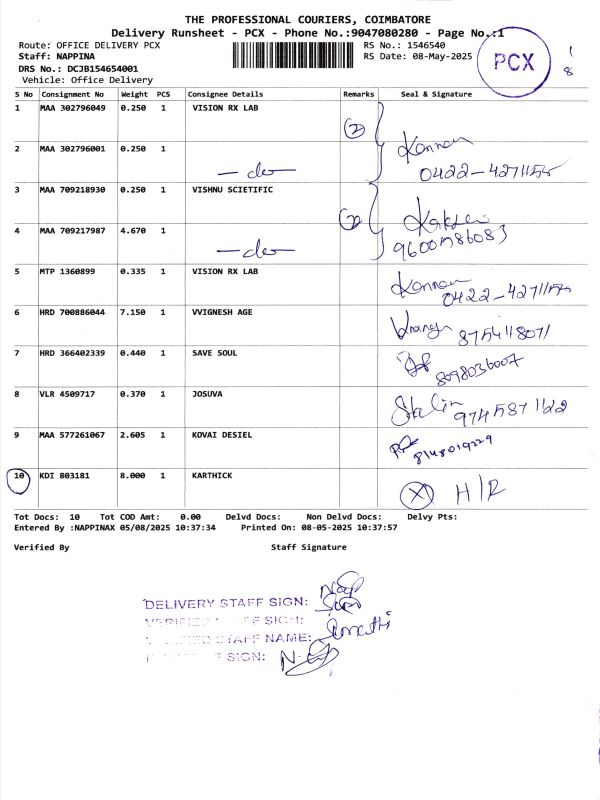 THE PROFESSIONAL COURIERS, COIMBATORE
Delivery Runsheet - PCX - Phone No.:9047080280 - Page No.:1
Route: OFFICE DELIVERY PCX
RS No.: 1546540
Staff: NAPPINA
RS Date: 08-May-2025
DRS No.: DCJB154654001
Vehicle: Office Delivery
PCX
1
8
S No Consignment No Weight PCS Consignee Details Remarks Seal & Signature
1 MAA 302796049 0.250 1 VISION RX LAB
2
2 MAA 302796001 0.250 1 — do — Kannan
0422-4271155
3 MAA 709218930 0.250 1 VISHNU SCIETIFIC
2
4 MAA 709217987 4.670 1 — do —
9600586083
5 MTP 1360899 0.335 1 VISION RX LAB Kannan
0422-4271155
6 HRD 700886044 7.150 1 VVIGNESH AGE
8754118071
7 HRD 366402339 0.440 1 SAVE SOUL
8098036007
8 VLR 4509717 0.370 1 JOSUVA Stalin
9745871122
9 MAA 577261067 2.605 1 KOVAI DESIEL
8148019229
10 KDI 803181 8.000 1 KARTHICK X H/R
Tot Docs: 10 Tot COD Amt: 0.00 Delvd Docs: Non Delvd Docs: Delvy Pts:
Entered By :NAPPINAX 05/08/2025 10:37:34 Printed On: 08-05-2025 10:37:57
Verified By Staff Signature
DELIVERY STAFF SIGN:
VERIFIED STAFF SIGN:
VERIFIED STAFF NAME:
SIGN: